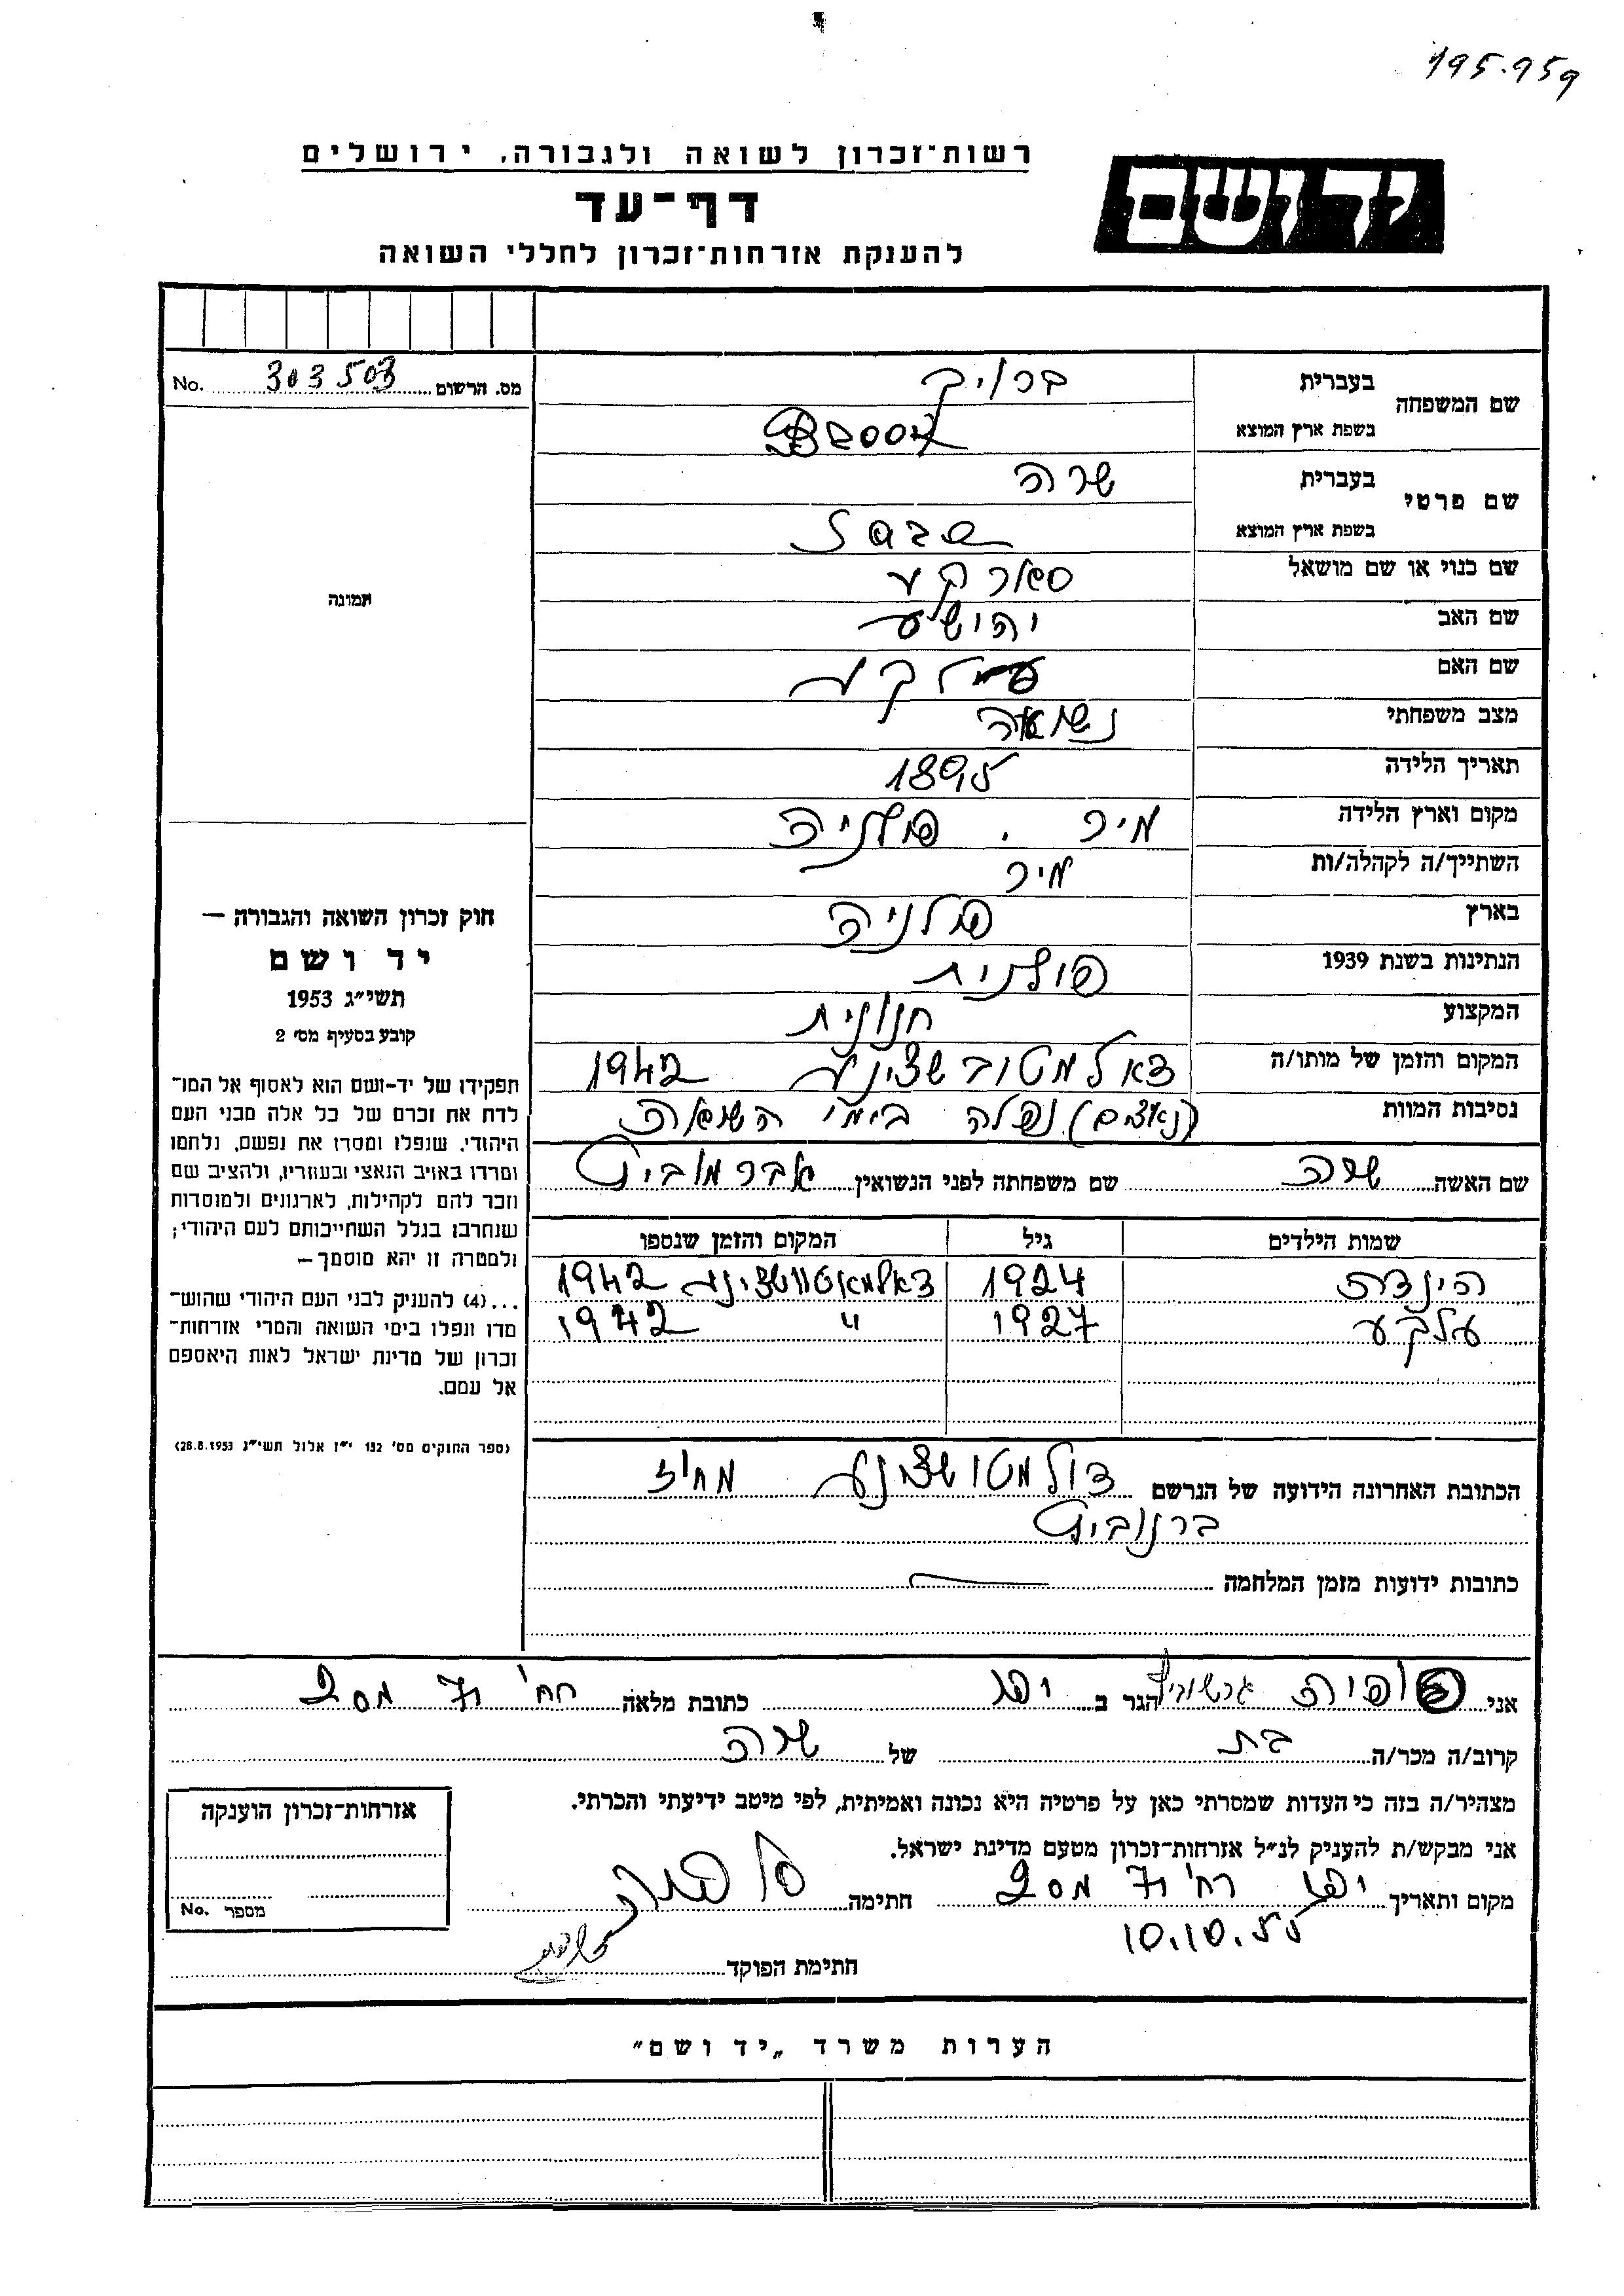 195.959
רשות־זכרון לשואה ולגבורה, ירושלים
יד ושם
דף־עד
להענקת אזרחות־זכרון לחללי השואה
מס. הרשום 303503 No.
שם המשפחה
בעברית ברויק
בשפת ארץ המוצא Brook
שם פרטי
בעברית שרה
בשפת ארץ המוצא
שם כנוי או שם מושאל סארקע
שם האב יהושע
שם האם
מצב משפחתי נשואה
תאריך הלידה 1895
מקום וארץ הלידה מיר . פולניה
השתייך/ה לקהלה/ות מיר
בארץ פולניה
הנתינות בשנת 1939 פולנית
המקצוע חנונית
המקום והזמן של מותו/ה דאלמטובשצינע 1942
נסיבות המוות (נאצים) נפלה בימי השואה
שם האשה שרה שם משפחתה לפני הנשואין אברמוביץ
שמות הילדים גיל המקום והזמן שנספו
הינדת 1924 דאלמאטווטצינע 1942
עלקע 1927 " 1942
הכתובת האחרונה הידועה של הנרשם דולמטושצנע מחוז
ברנוביץ
כתובות ידועות מזמן המלחמה
תמונה
חוק זכרון השואה והגבורה —
יד ושם
תשי״ג 1953
קובע בסעיף מס׳ 2
תפקידו של יד-ושם הוא לאסוף אל המו־
לדת את זכרם של כל אלה מבני העם
היהודי, שנפלו ומסרו את נפשם, נלחמו
ומרדו באויב הנאצי ובעוזריו, ולהציב שם
וזכר להם לקהילות, לארגונים ולמוסדות
שנחרבו בגלל השתייכותם לעם היהודי;
ולמטרה זו יהא מוסמך —
...(4) להעניק לבני העם היהודי שהוש־
מדו ונפלו בימי השואה והמרי אזרחות־
זכרון של מדינת ישראל לאות היאספם
אל עמם.
(ספר החוקים מס׳ 132 י״ז אלול תשי״ג 28.8.1953)
אני צופיה גרשוביץ הגר ב יפו כתובת מלאה רח׳ 71 מס 2
קרוב/ה מכר/ה בת של שרה
מצהיר/ה בזה כי העדות שמסרתי כאן על פרטיה היא נכונה ואמיתית, לפי מיטב ידיעתי והכרתי.
אני מבקש/ת להעניק לנ״ל אזרחות־זכרון מטעם מדינת ישראל.
מקום ותאריך יפו רח׳ 71 מס 2 חתימה
10.10.55
חתימת הפוקד
אזרחות־זכרון הוענקה
מספר No.
הערות משרד „יד ושם״